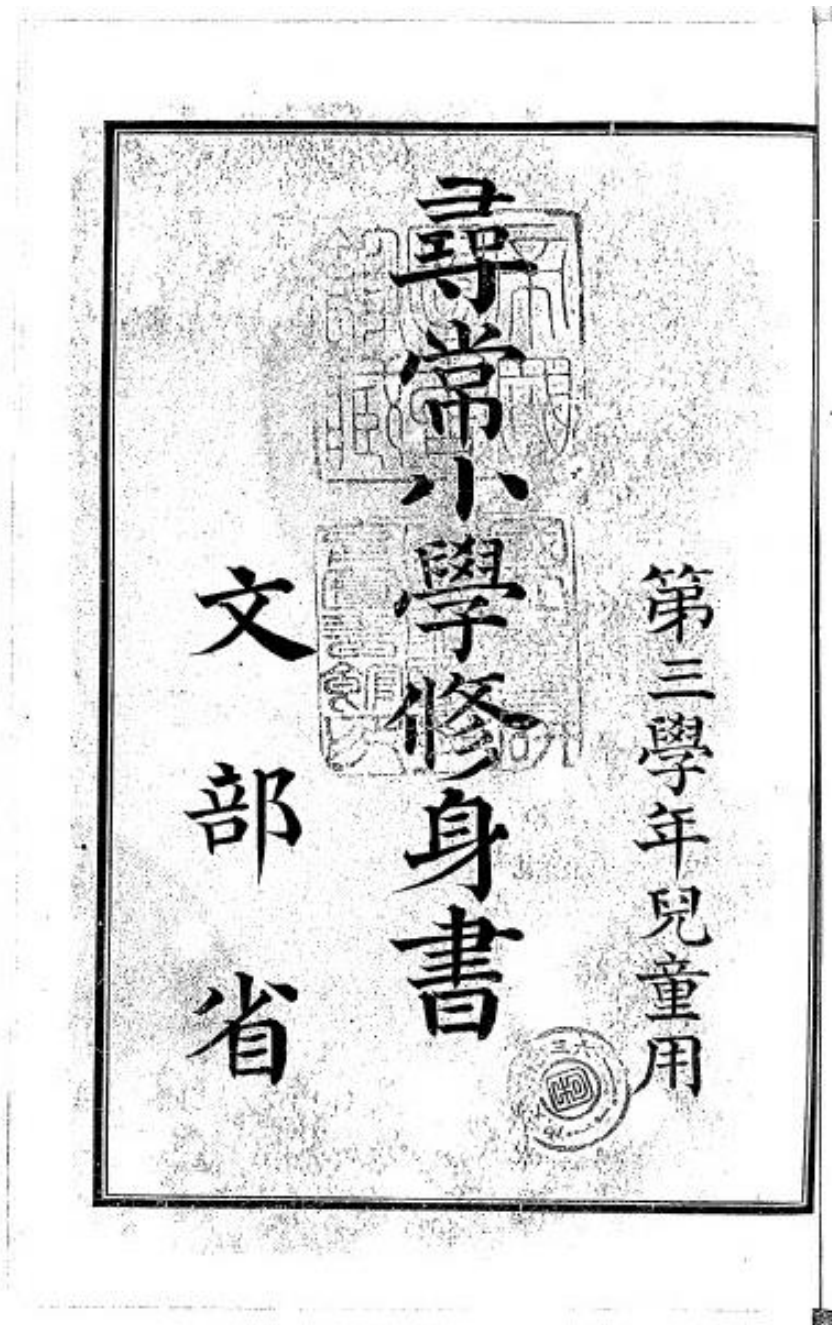 第三學年兒童用
尋常小學修身書
文部省